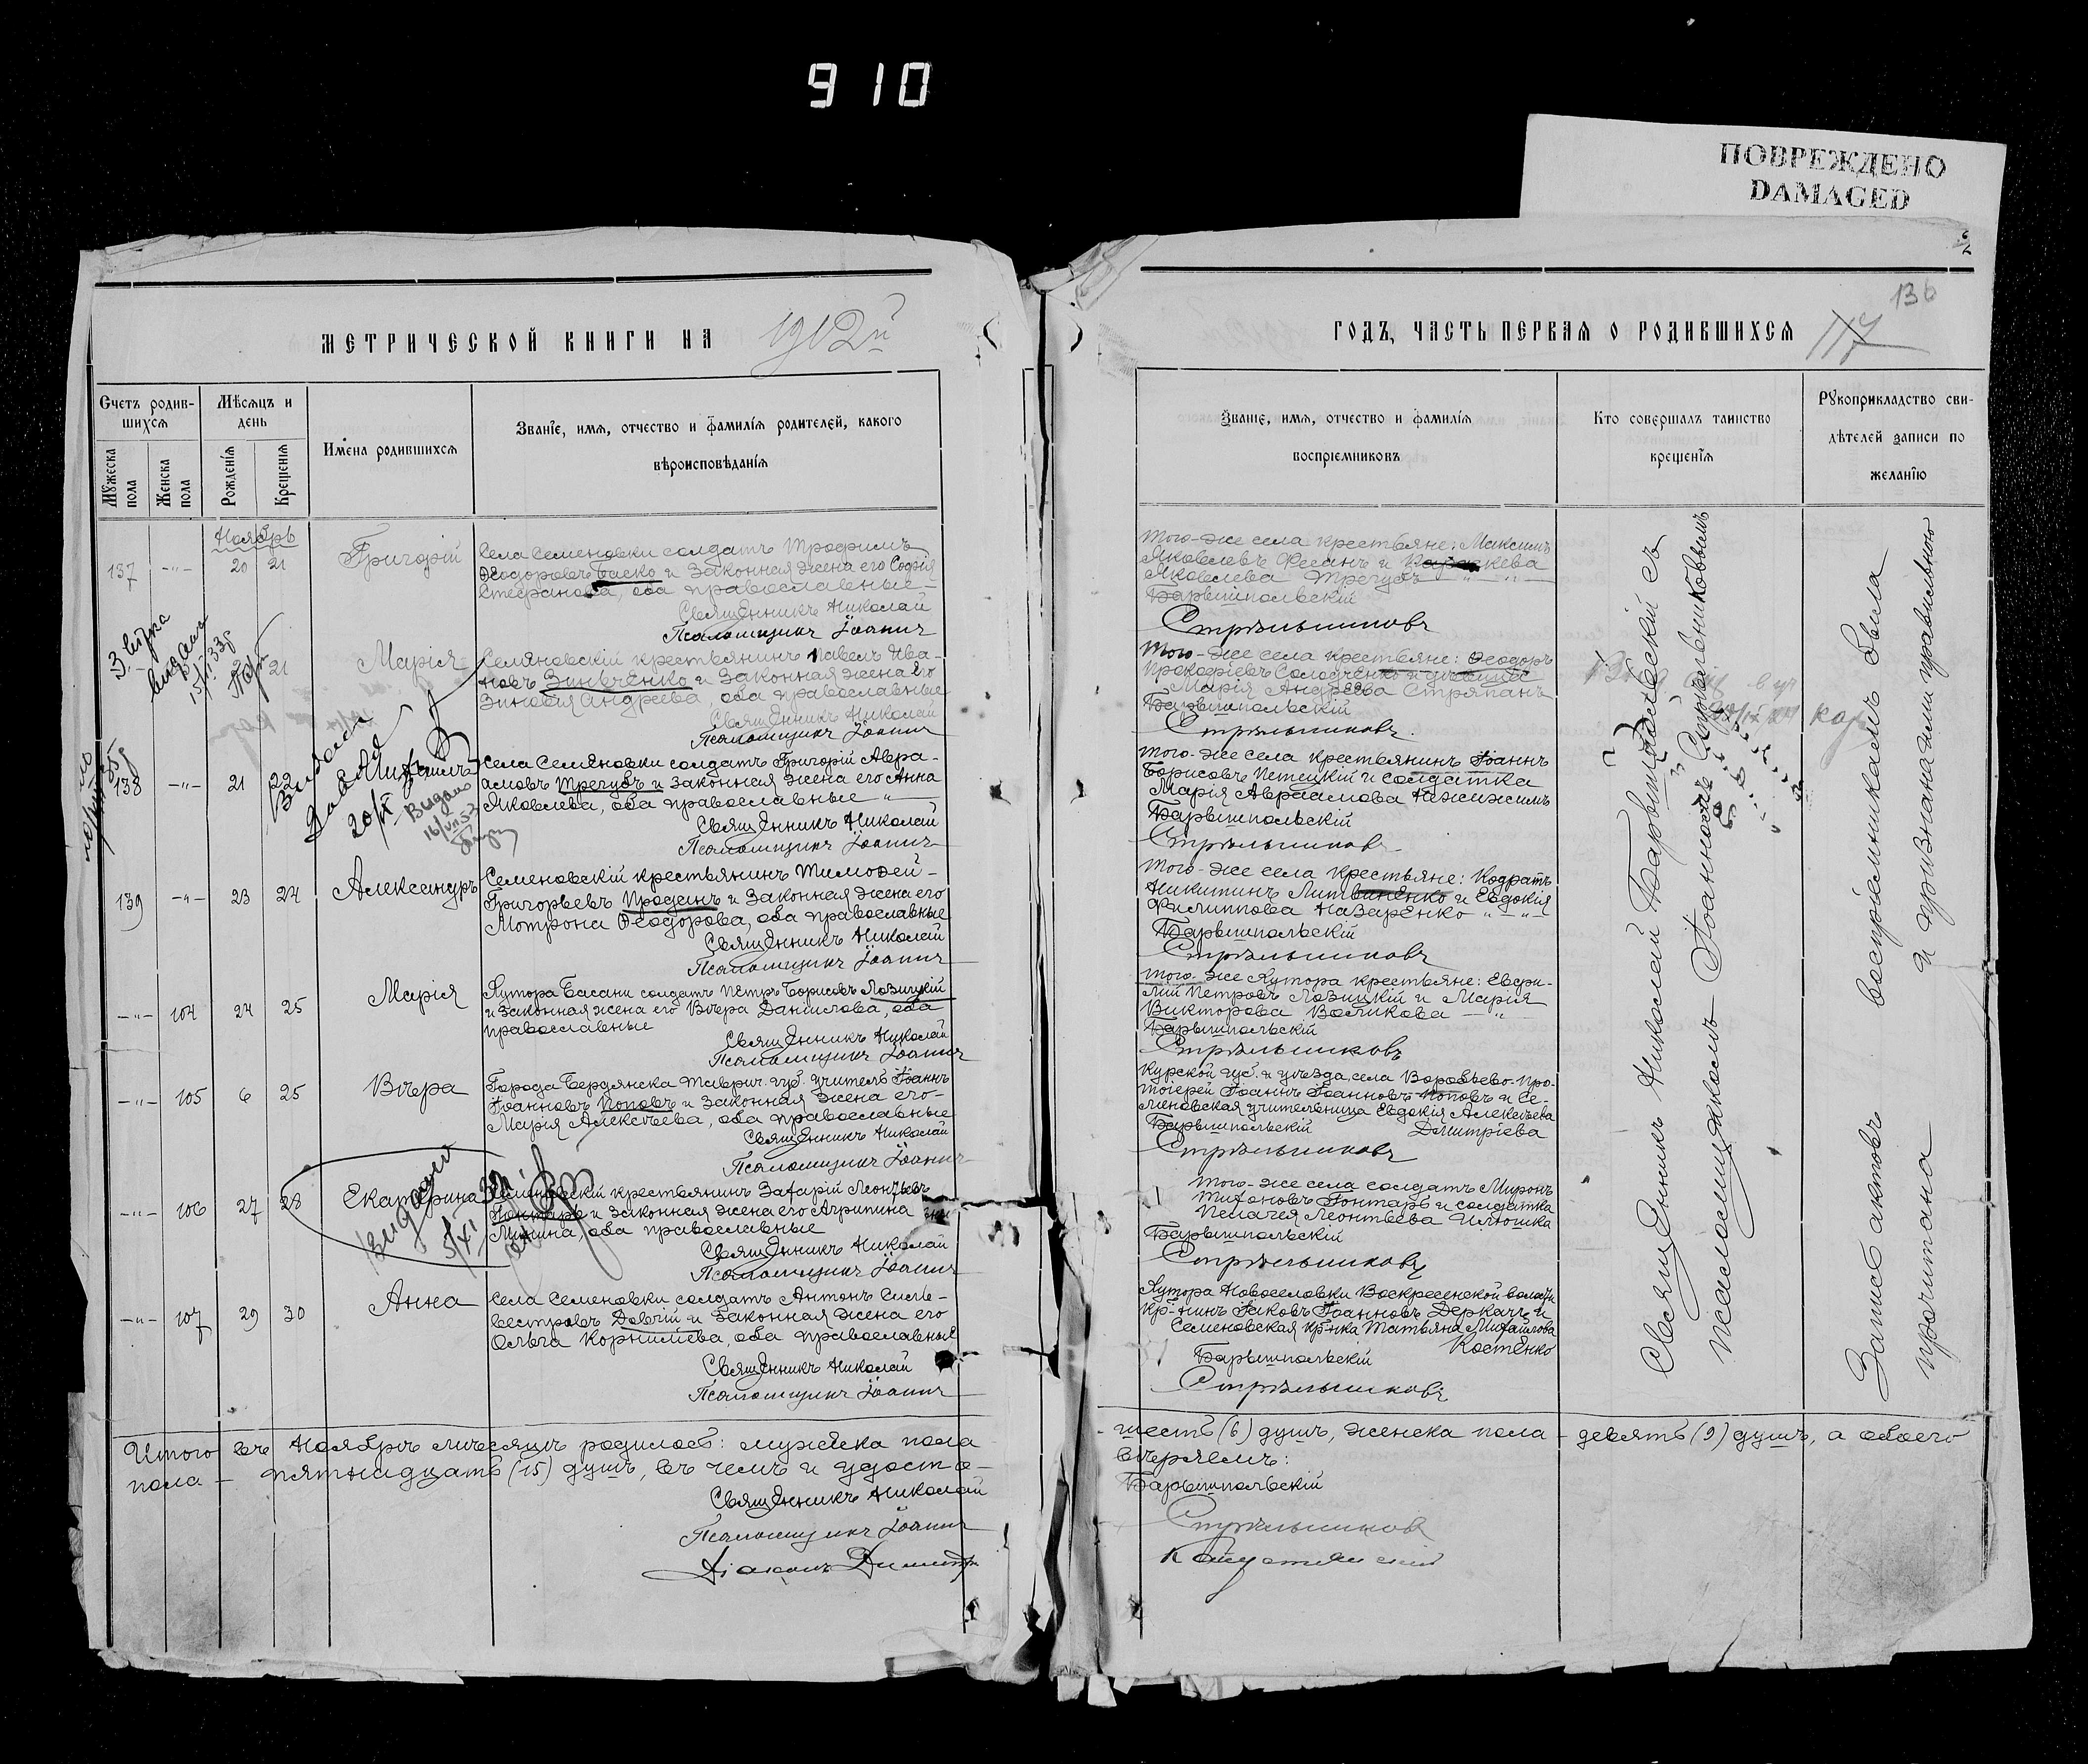 910
ПОВРЕЖДЕНО
DAMAGED
136
МЕТРИЧЕСКОЙ КНИГИ НА 1912й
ГОДЪ, ЧАСТЬ ПЕРВАЯ О РОДИВШИХСЯ 117
Счетъ родив-
шихся
Мужеска пола
Женска пола
Мѣсяцъ и день
Рожденія
Крещенія
Имена родившихся
Званіе, имя, отчество и фамилія родителей, какого
вѣроисповѣданія
Званіе, имя, отчество и фамилія
воспріемниковъ
Кто совершалъ таинство
крещенія
Рукоприкладство сви-
дѣтелей записи по
желанію
Ноябрь
137 -"- 20 21 Григорій
Села Семеновки солдатъ Трофимъ
Ѳеодоровъ Баско и законная жена его Софія
Стефанова, оба православные
Священникъ Николай
Псаломщикъ Іоаннъ
Того-же села крестьяне: Максимъ
Яковлевъ Фесанъ и Параскева
Яковлева Трегубъ
Барышпольскій
Стрѣльниковъ
21 Марія
Семяновскій крестьянинъ Павелъ Ива-
новъ Зинченко и законная жена его
Зиновія Андреева, оба православные
Священникъ Николай
Псаломщикъ Іоаннъ
Того-же села крестьяне: Ѳеодоръ
Прокофіевъ Солодченко и
Марія Андреева Стряпанъ
Барышпольскій
Стрѣльниковъ
138 -"- 21 22 Михаилъ
Села Семеновки солдатъ Григорій Авра-
амовъ Трегубъ и законная жена его Анна
Яковлева, оба православные
Священникъ Николай
Псаломщикъ Іоаннъ
Того-же села крестьянинъ Іоаннъ
Борисовъ Петецкій и солдатка
Марія Авраамова
Барышпольскій
Стрѣльниковъ
139 -"- 23 24 Александръ
Семеновскій крестьянинъ Тимофей
Григорьевъ Проданъ и законная жена его
Мотрона Ѳеодорова, оба православные
Священникъ Николай
Псаломщикъ Іоаннъ
Того-же села крестьяне: Кодратъ
Никитинъ Литвиненко и Евдокія
Филиппова Назаренко
Барышпольскій
Стрѣльниковъ
-"- 104 24 25 Марія
Хутора Басани солдатъ Петръ Борисовъ Лозицкій
и законная жена его Вѣра Данилова, оба
православные
Священникъ Николай
Псаломщикъ Іоаннъ
Того-же хутора крестьяне: Еври-
лій Петровъ Лозицкій и Марія
Викторова Воликова
Барышпольскій
Стрѣльниковъ
-"- 105 6 25 Вѣра
Города Бердянска Таврич. губ. учитель Іоаннъ
Іоанновъ Поповъ и законная жена его
Марія Алексѣева, оба православные
Священникъ Николай
Псаломщикъ Іоаннъ
Курской губ. и уѣзда, села Воробьево-про-
тоіерей Іоаннъ Іоанновъ Поповъ и Се-
меновская учительница Евдокія Алексѣева
Дмитріева
Барышпольскій
Стрѣльниковъ
-"- 106 27 28 Екатерина
Семеновскій крестьянинъ Захарій Леонтьевъ
Гонтарь и законная жена его Агрипина
Лукина, оба православные
Священникъ Николай
Псаломщикъ Іоаннъ
Того-же села солдатъ Миронъ
Тихоновъ Гонтарь и солдатка
Пелагея Леонтьева Илюшка
Барышпольскій
Стрѣльниковъ
-"- 107 29 30 Анна
Села Семеновки солдатъ Антонъ Силь-
вестровъ Довгій и законная жена его
Ольга Корнилева, оба православные
Священникъ Николай
Псаломщикъ Іоаннъ
Хутора Новоселовки Воскресенской волости
кр-нинъ Іаковъ Іоанновъ Деркачъ и
Семеновская кр-нка Татьяна Михайлова
Костенко
Барышпольскій
Стрѣльниковъ
Священникъ Николай Барышпольскій съ
псаломщикомъ Іоанномъ Стрѣльниковымъ
Запись актовъ воспріемникамъ была
прочитана и признана ими правильною
Итого въ Ноябрѣ мѣсяцѣ родилось: мужеска пола шесть (6) душъ, женска пола - девять (9) душъ, а обоего
пола - пятнадцать (15) душъ, въ чемъ и удосто-вѣряемъ:
Священникъ Николай Барышпольскій
Псаломщикъ Іоаннъ Стрѣльниковъ
Діаконъ Димитр